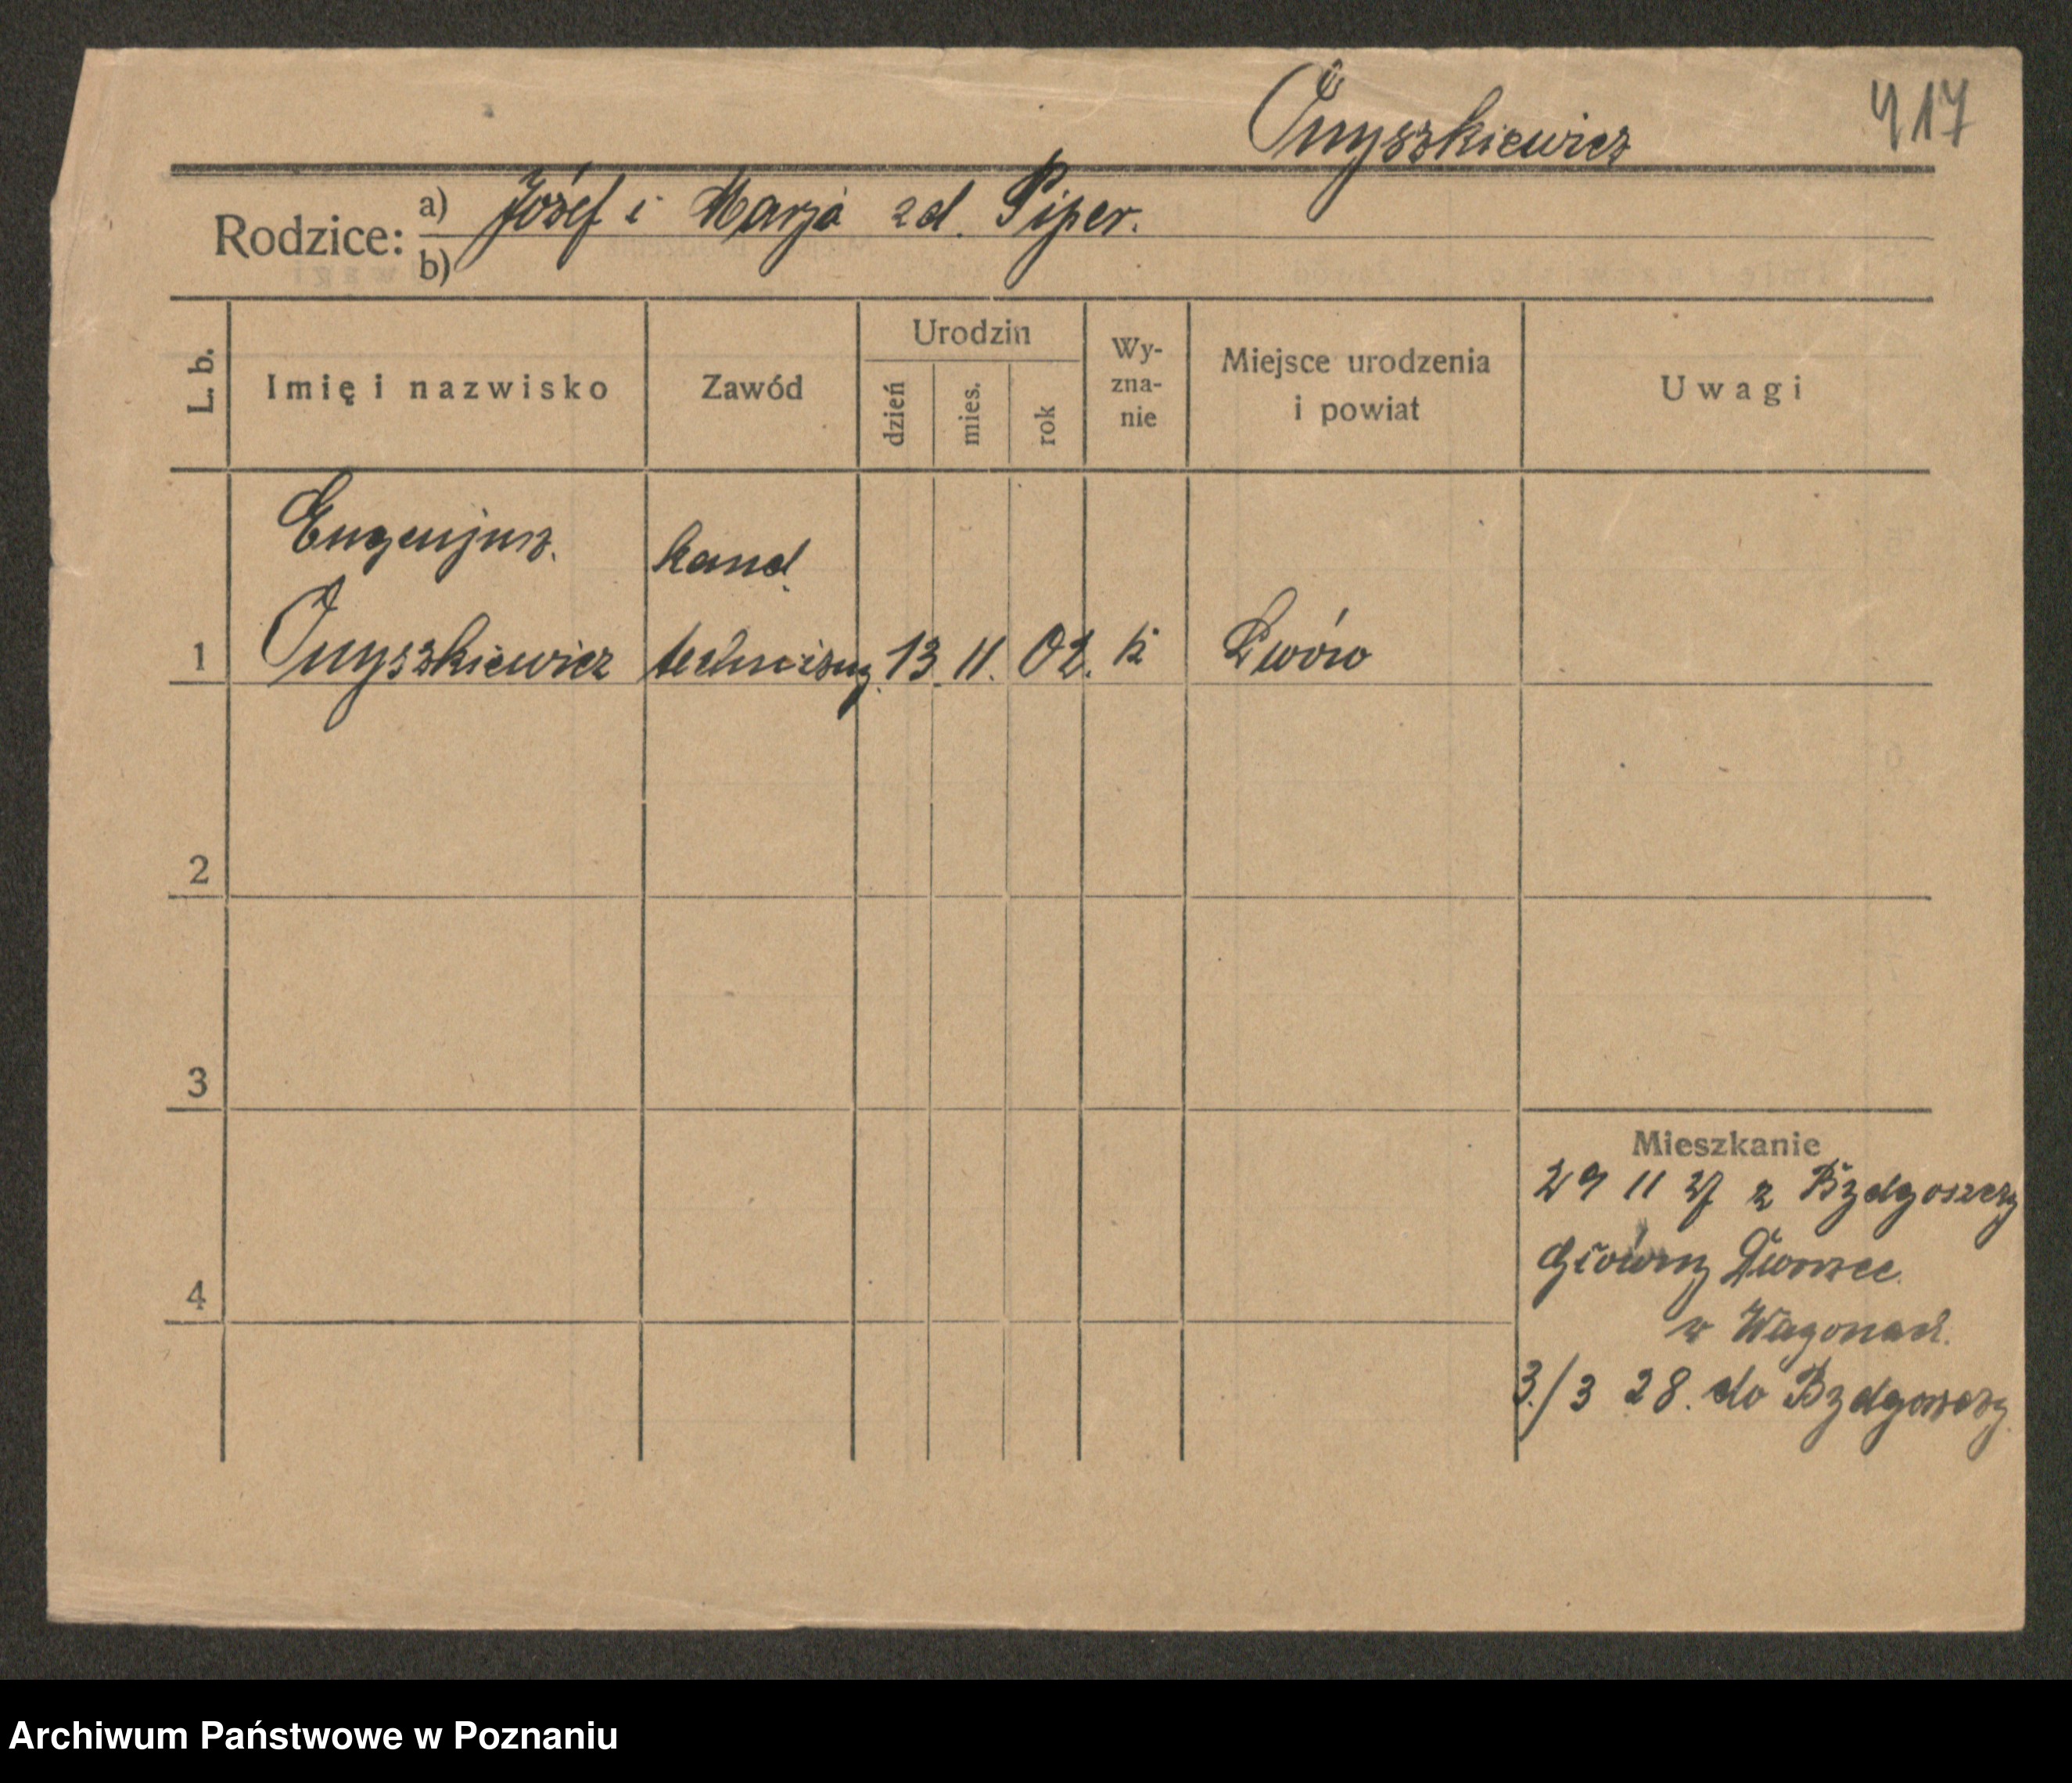 Onyszkiewicz
417
Rodzice: a) Józef i Marja zd. Piper.
b)
L. b.
Imię i nazwisko
Zawód
Urodzin
dzień
mies.
rok
Wy-
zna-
nie
Miejsce urodzenia
i powiat
Uwagi
Eugenjusz. kand.
1 Onyszkiewicz techniczny. 13. 11. 02. k Lwów
2
3
Mieszkanie
29 11 27 z Bydgoszczy
Główny Dworzec
4
w Wagonach.
3./3 28. do Bydgoszczy.
Archiwum Państwowe w Poznaniu